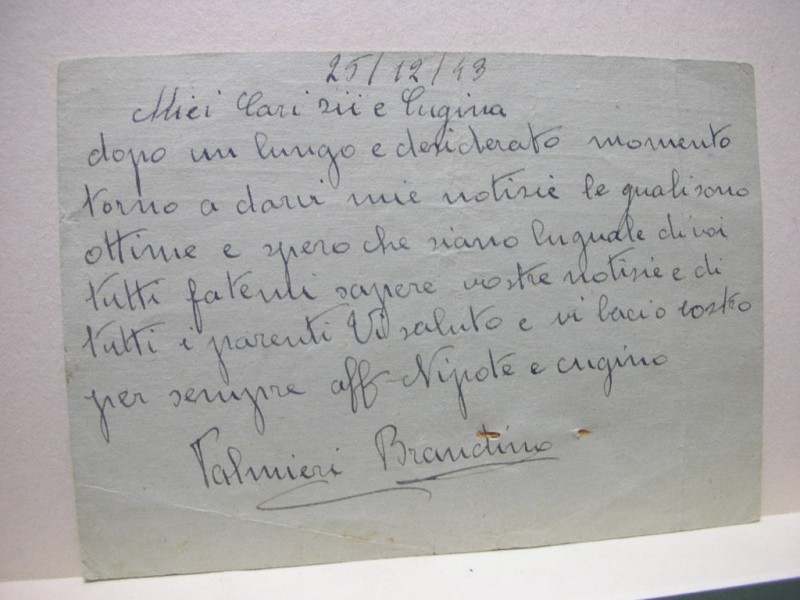 25/12/43
Miei Cari zii e Cugina
dopo un lungo e desiderato momento
torno a darvi mie notisie le quali sono
ottime e spero che siano luguale di voi
tutti fatemi sapere vostre notisie e di
tutti i parenti Vi saluto e vi bacio vostro
per sempre aff- Nipote e cugino
Palmieri Brandino